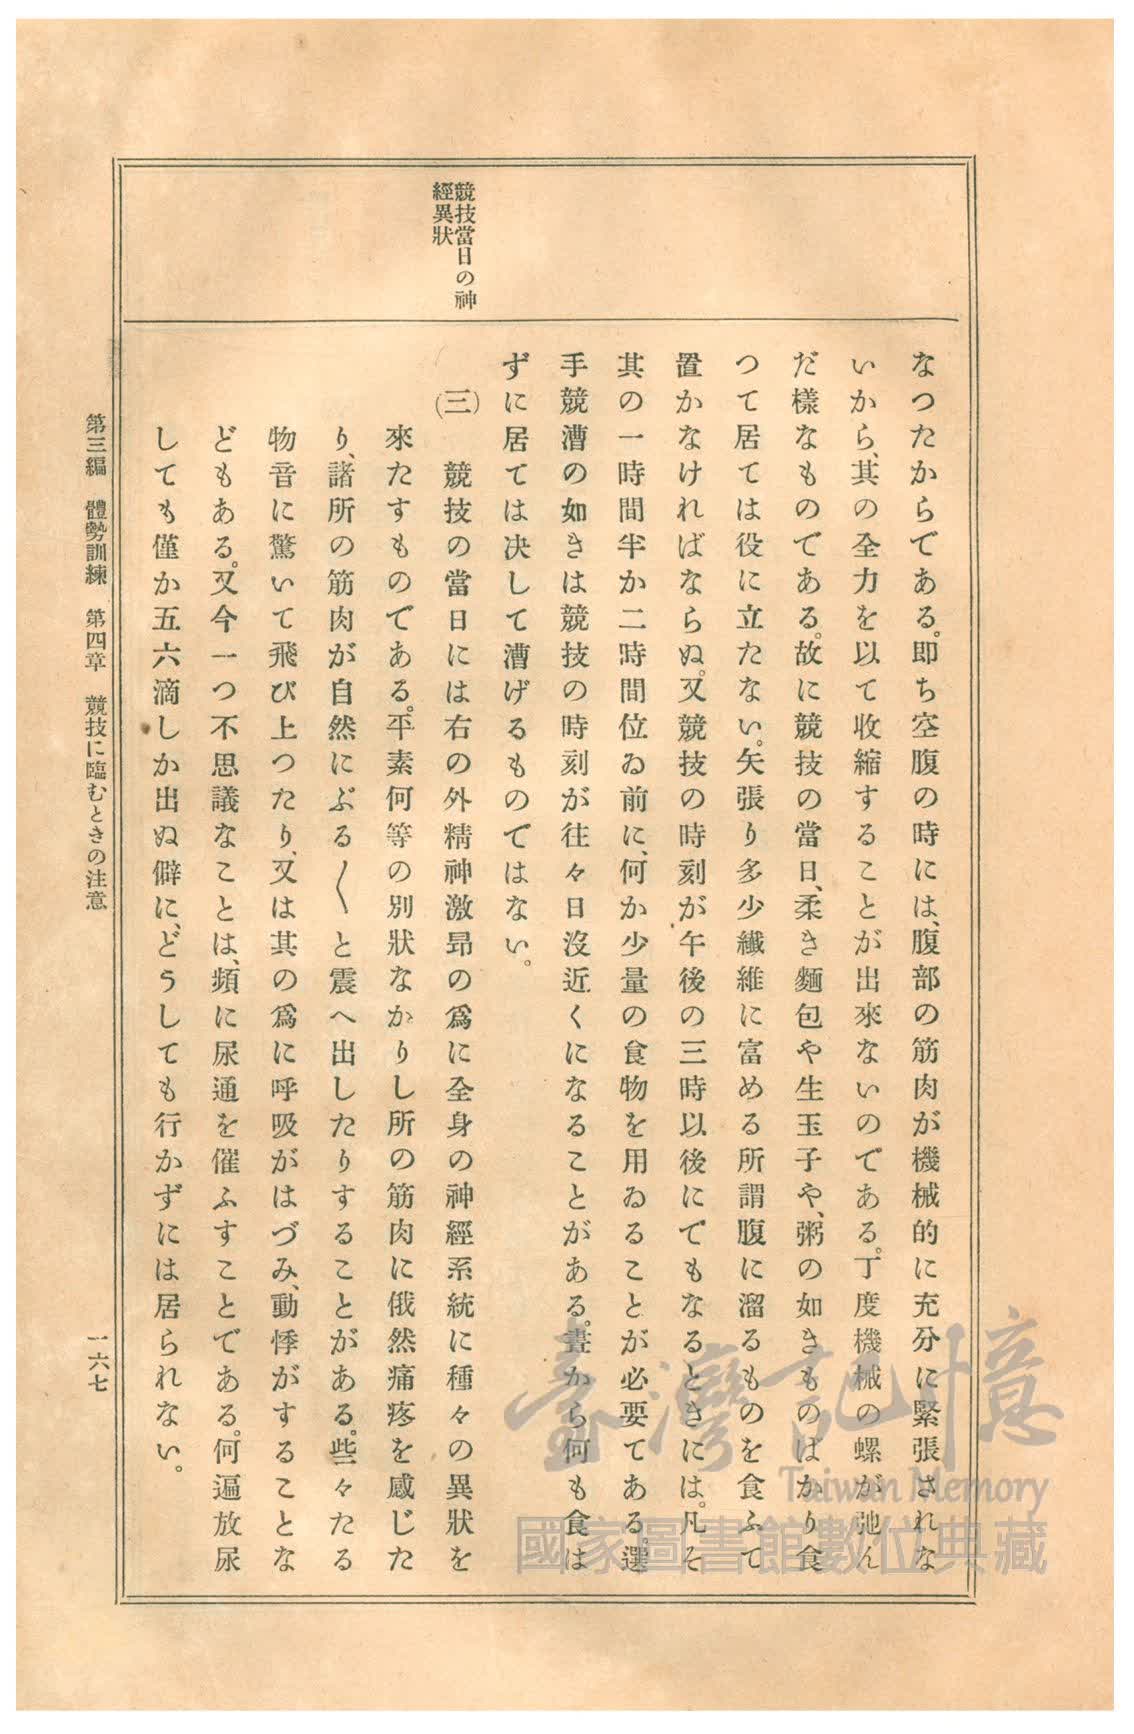 競技當日の神
經異狀
なつたからである。即ち空腹の時には、腹部の筋肉が機械的に充分に緊張されな
いから、其の全力を以て收縮することが出來ないのである。丁度機械の螺が弛ん
だ樣なものである。故に競技の當日、柔き麵包や生玉子や、粥の如きものばかり食
つて居ては役に立たない。矢張り多少纎維に富める所謂腹に溜るものを食ふて
置かなければならぬ。又競技の時刻が午後の三時以後にでもなるときには。凡そ
其の一時間半か二時間位ゐ前に、何か少量の食物を用ゐることが必要てある。選
手競漕の如きは競技の時刻が往々日沒近くになることがある。晝から何も食は
ずに居ては决して漕げるものではない。
(三)　競技の當日には右の外精神激昂の爲に全身の神經系統に種々の異狀を
來たすものである。平素何等の別狀なかりし所の筋肉に俄然痛疼を感じた
り、諸所の筋肉が自然にぶる〳〵と震へ出したりすることがある。些々たる
物音に驚いて飛び上つたり、又は其の爲に呼吸がはづみ、動悸がすることな
どもある。又今一つ不思議なことは、頻に尿通を催ふすことである。何遍放尿
しても僅か五六滴しか出ぬ僻に、どうしても行かずには居られない。
第三編　體勢訓練　第四章　競技に臨むときの注意
一六七
臺灣記憶
Taiwan Memory
國家圖書館數位典藏